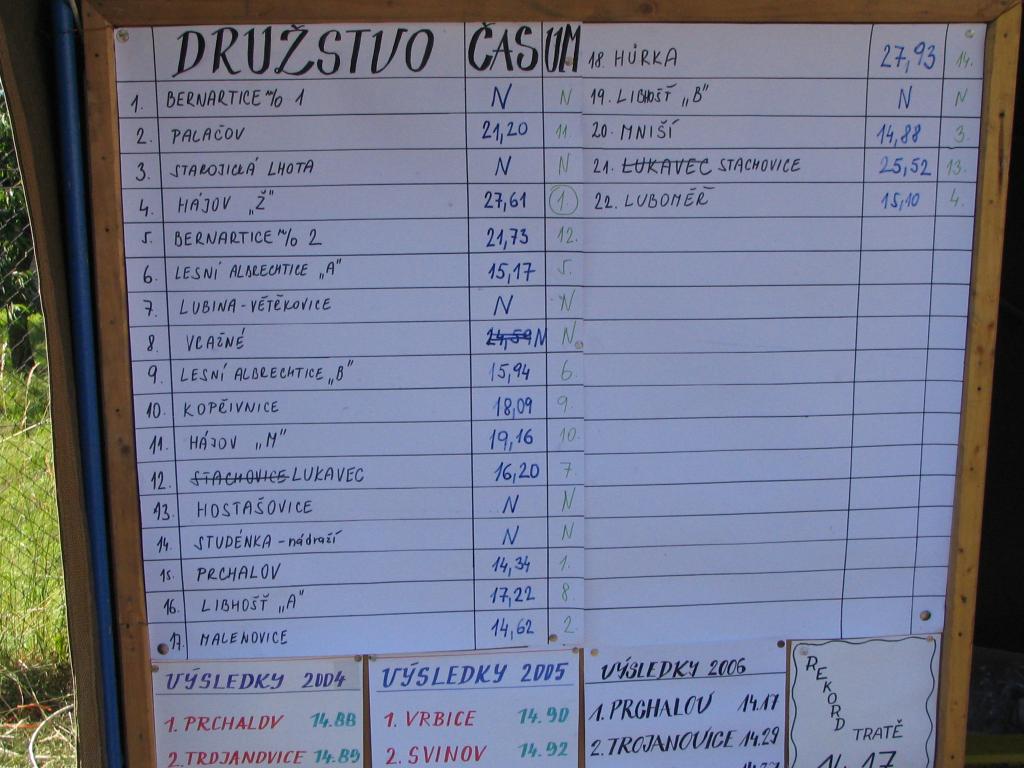 DRUŽSTVO ČAS UM
1. BERNARTICE n/O 1 N N
2. PALAČOV 21,20 11.
3. STAROJICKÁ LHOTA N N
4. HÁJOV „Ž" 27,61 1.
5. BERNARTICE n/O 2 21,73 12.
6. LESNÍ ALBRECHTICE „A" 15,17 5.
7. LUBINA - VĚTŘKOVICE N N
8. VLAŽNÉ 24,59 N N
9. LESNÍ ALBRECHTICE „B" 15,94 6.
10. KOPŘIVNICE 18,09 9.
11. HÁJOV „M" 19,16 10.
12. STACHOVICE LUKAVEC 16,20 7.
13. HOSTAŠOVICE N N
14. STUDÉNKA - nádraží N N
15. PRCHALOV 14,34 1.
16. LIBHOŠŤ „A" 17,22 8.
17. MALENOVICE 14,62 2.
18. HŮRKA 27,93 14.
19. LIBHOŠŤ „B" N N
20. MNIŠÍ 14,88 3.
21. LUKAVEC STACHOVICE 25,52 13.
22. LUBOMĚŘ 15,10 4.
VÝSLEDKY 2004
1. PRCHALOV 14.88
2. TROJANOVICE 14.89
VÝSLEDKY 2005
1. VRBICE 14.90
2. SVINOV 14.92
VÝSLEDKY 2006
1. PRCHALOV 14.17
2. TROJANOVICE 14.29
REKORD
TRATĚ
14.17